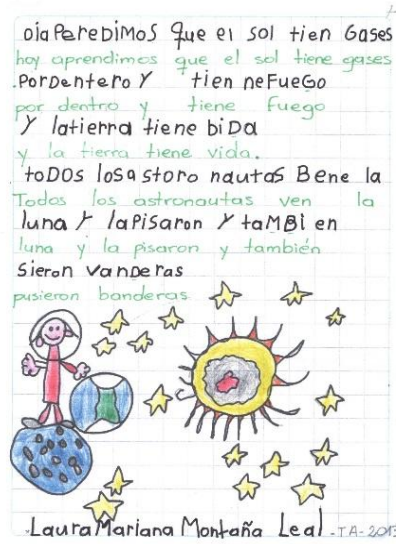 oiaPereDiMos que el sol tien Gases
hoy aprendimos que el sol tiene gases
.PorDenteroY tien neFueGo
por dentro y tiene fuego
Y latierra tiene biDa
y la tierra tiene vida.
toDOs losastoro nautas Bene la
Todos los astronautas ven la
luna Y laPisaron Y taMBi en
luna y la pisaron y también
Sieron vanDeras
pusieron banderas
.Laura Mariana Montaña Leal.-TA-2013